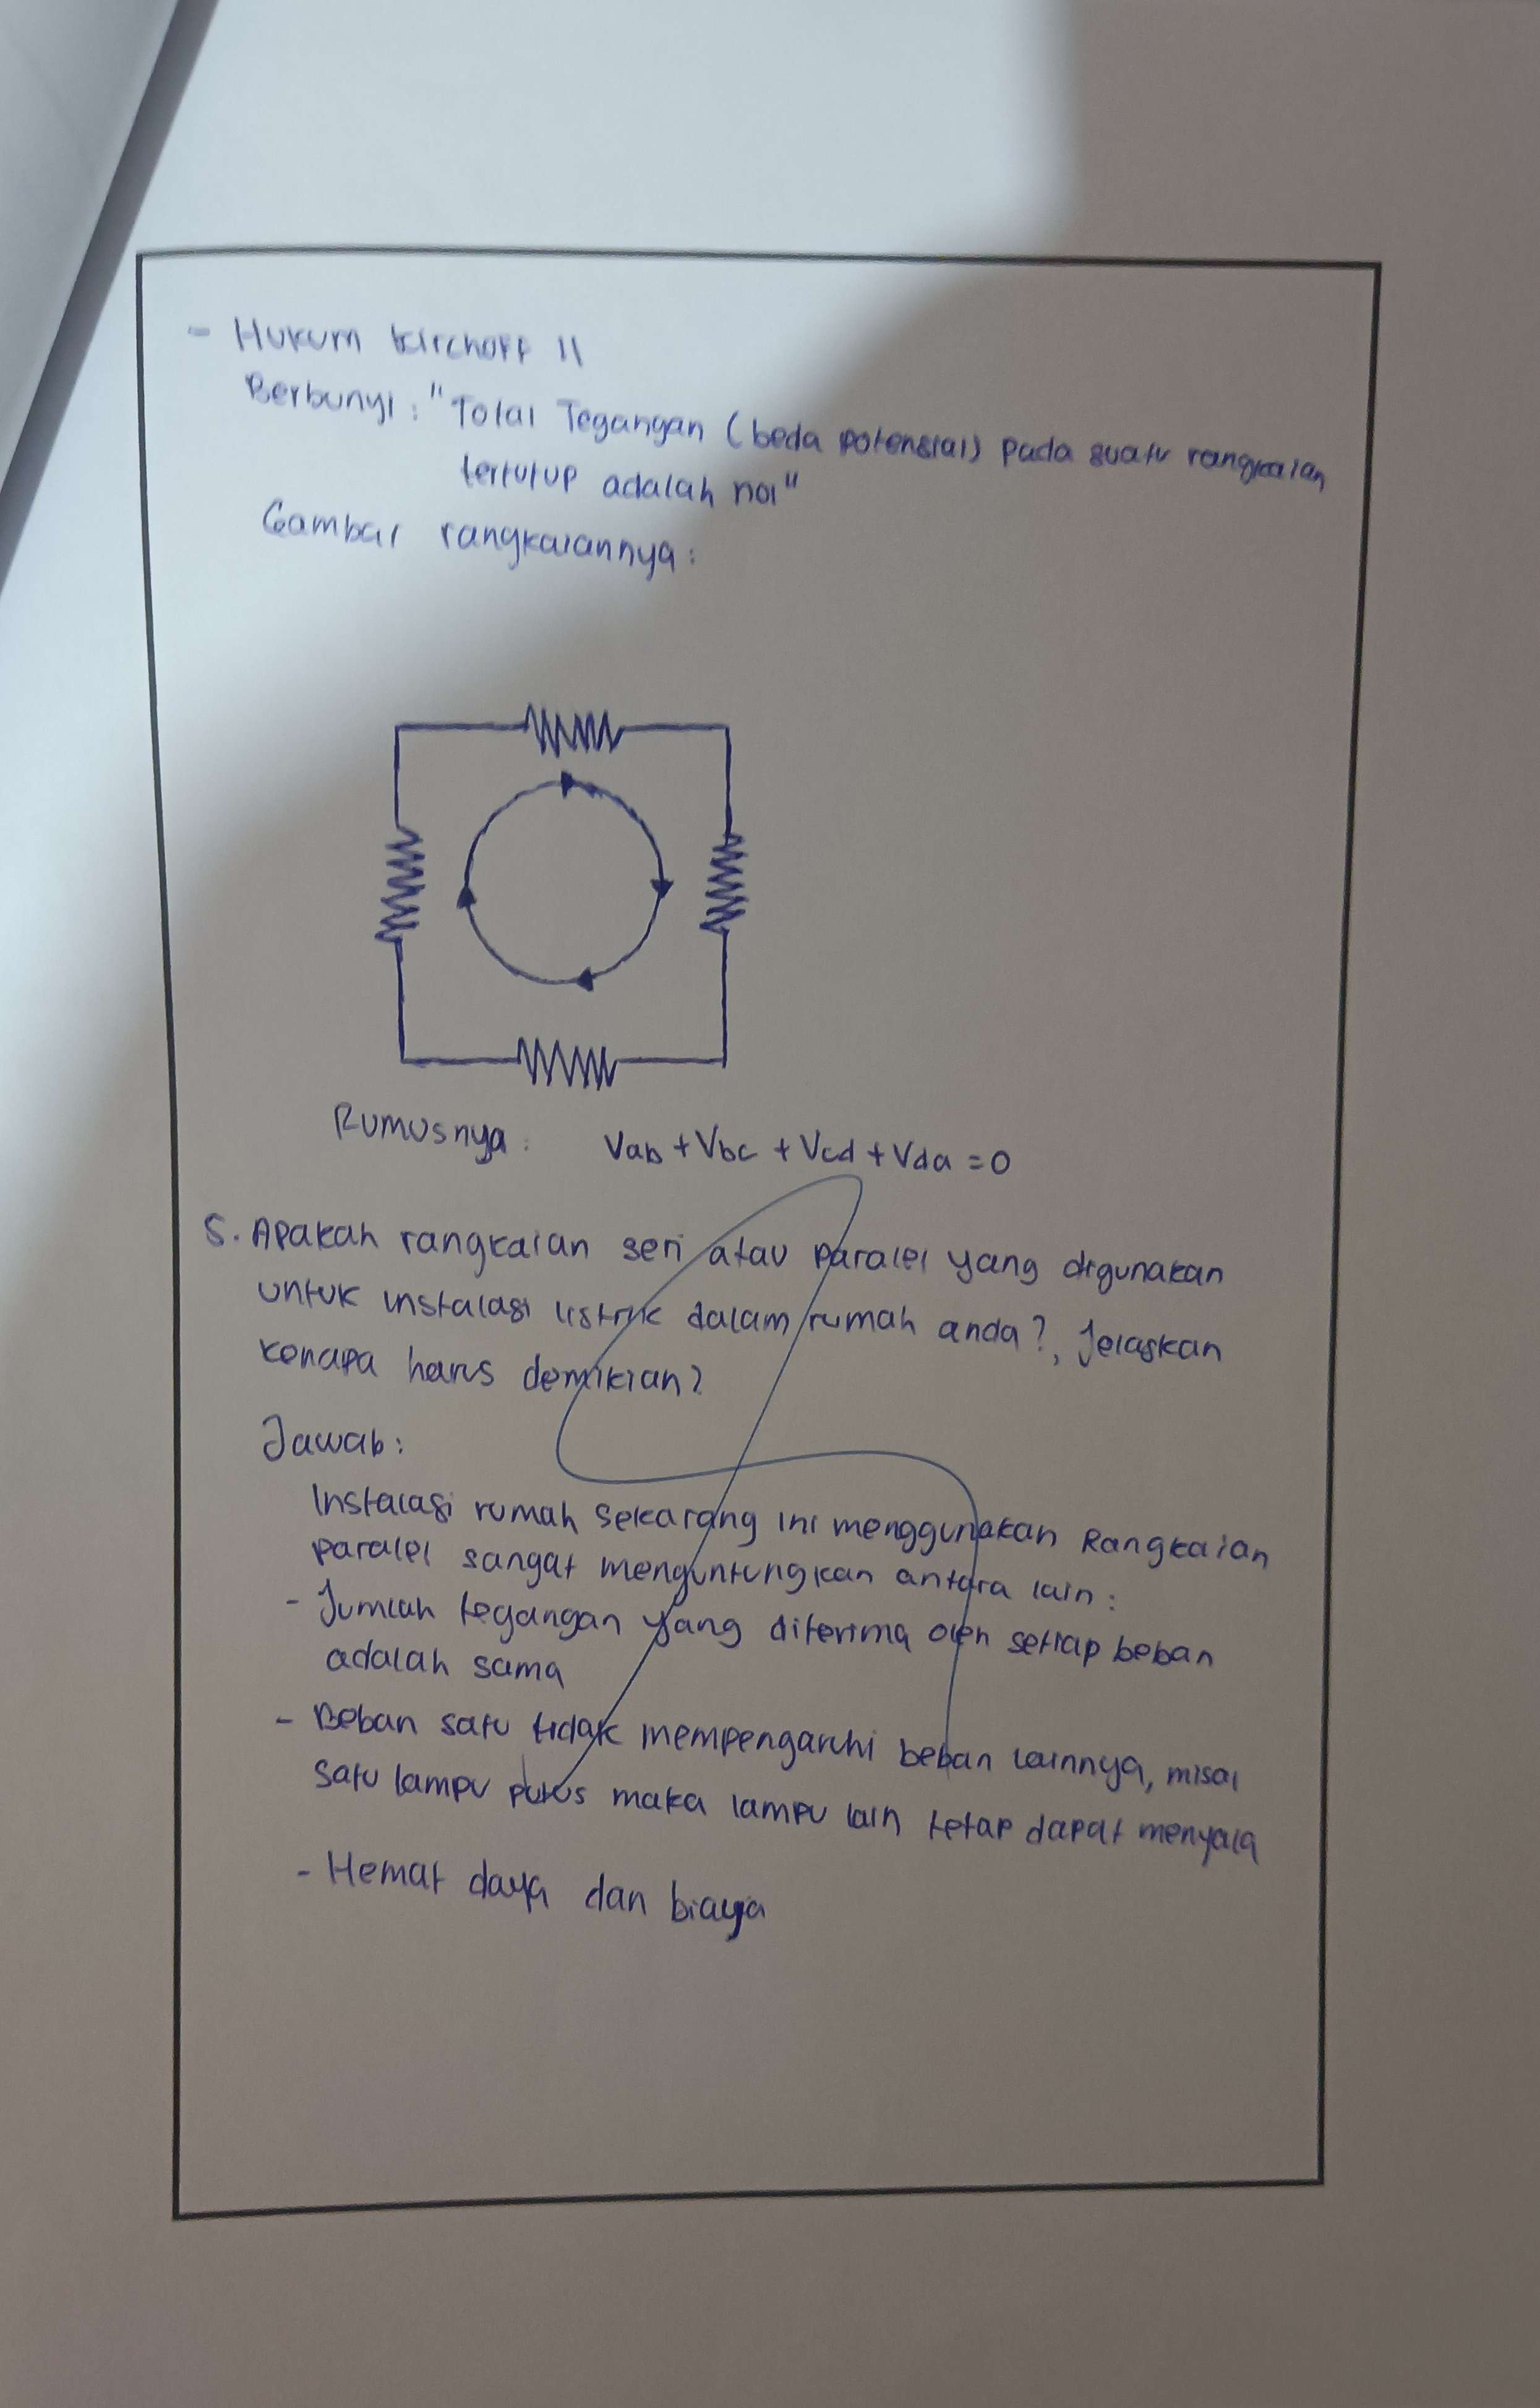 - Hukum kirchoff II
Berbunyi : "Total Tegangan (beda potensial) pada suatu rangkaian
tertutup adalah nol"
Gambar rangkaiannya :
Rumusnya : Vab + Vbc + Vcd + Vda = 0
5. Apakah rangkaian seri atau paralel yang digunakan
untuk instalasi listrik dalam rumah anda?, Jelaskan
kenapa harus demikian?
Jawab :
Instalasi rumah sekarang ini menggunakan Rangkaian
paralel sangat menguntungkan antara lain :
- Jumlah tegangan yang diterima oleh setiap beban
adalah sama
- Beban satu tidak mempengaruhi beban lainnya, misal
satu lampu putus maka lampu lain tetap dapat menyala
- Hemat daya dan biaya